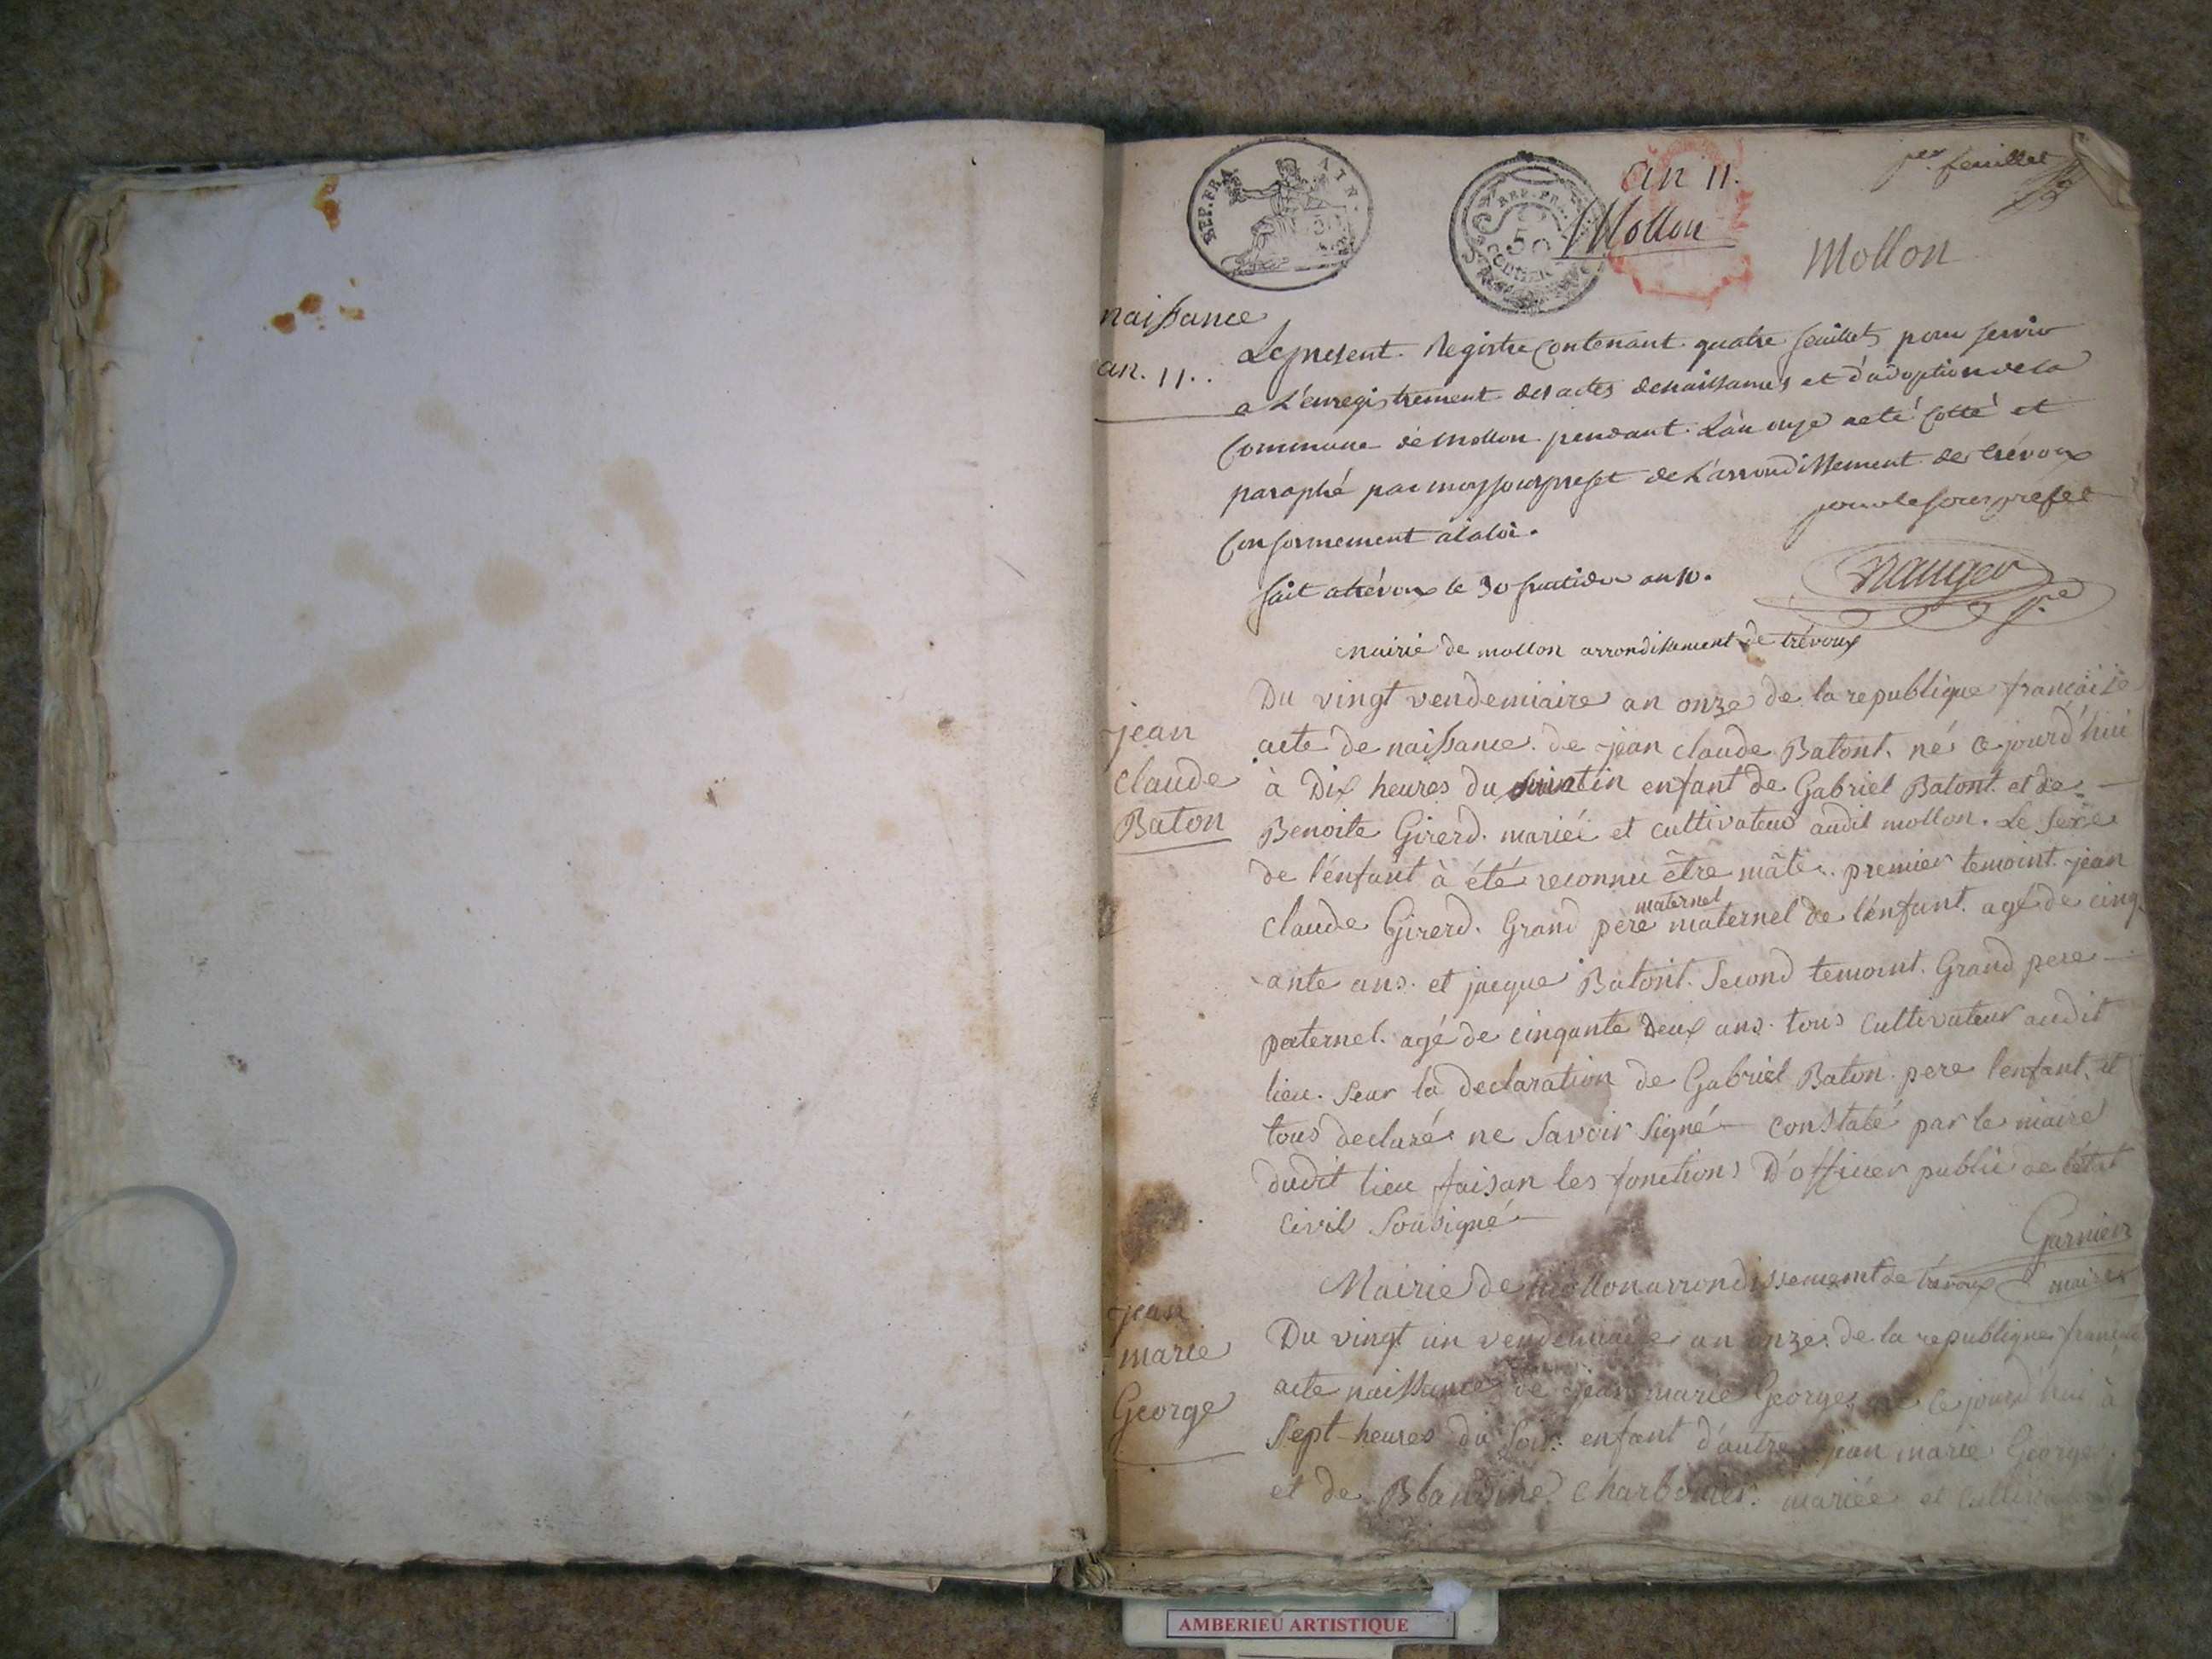 REP. FRA
REP. FRA.
50
an 11.
Mollon
per feuillet
Mollon
naissance
an. 11..
Le present Registre Contenant quatre feuillets pour servir
a L'enregistrement des actes de naissances et d'adoption de la
Commune de Mollon pendant L'an onze acté Cotté et
paraphé par moy sous prefet de L'arrondissement de trévoux
Conformement a la loi.
pour le sous prefet
fait a trévoux le 30 fructidor an 10.
mairie de mollon arrondissement de trévoux
jean
claude
Baton
Du vingt vendemiaire an onze de la republique francaise
acte de naissance de jean claude Batont. né ce jourd'hui
à Dix heures du matin enfant de Gabriel Batont et de
Benoite Girerd. mariée et cultivateur audit mollon. Le sexe
de l'enfant à été reconnu être mâle. premier temoint jean
claude Girerd. Grand pere maternel maternel de l'enfant. agé de cinq
ante ans. et jacque Batont. Second temoint. Grand pere
paternel. agé de cinquante Deux ans. tous cultivateur audit
lieu. Seur la declaration de Gabriel Baton pere l'enfant. et
tous declaré ne Savoir Signé constaté par le maire
dudit lieu faisan les fonctions D'officier public de l'état
civil Sousigné
Garnier
maire
Mairie de mollon arrondissement de trévoux
jean
marie
George
Du vingt un vendemiaire an onze de la republique francaise
acte naissance de jean marie George né ce jourd'hui à
Sept heures du Soir. enfant d'autre jean marie George
et de Blandine Charbonier. mariée et cultivateur
AMBERIEU ARTISTIQUE